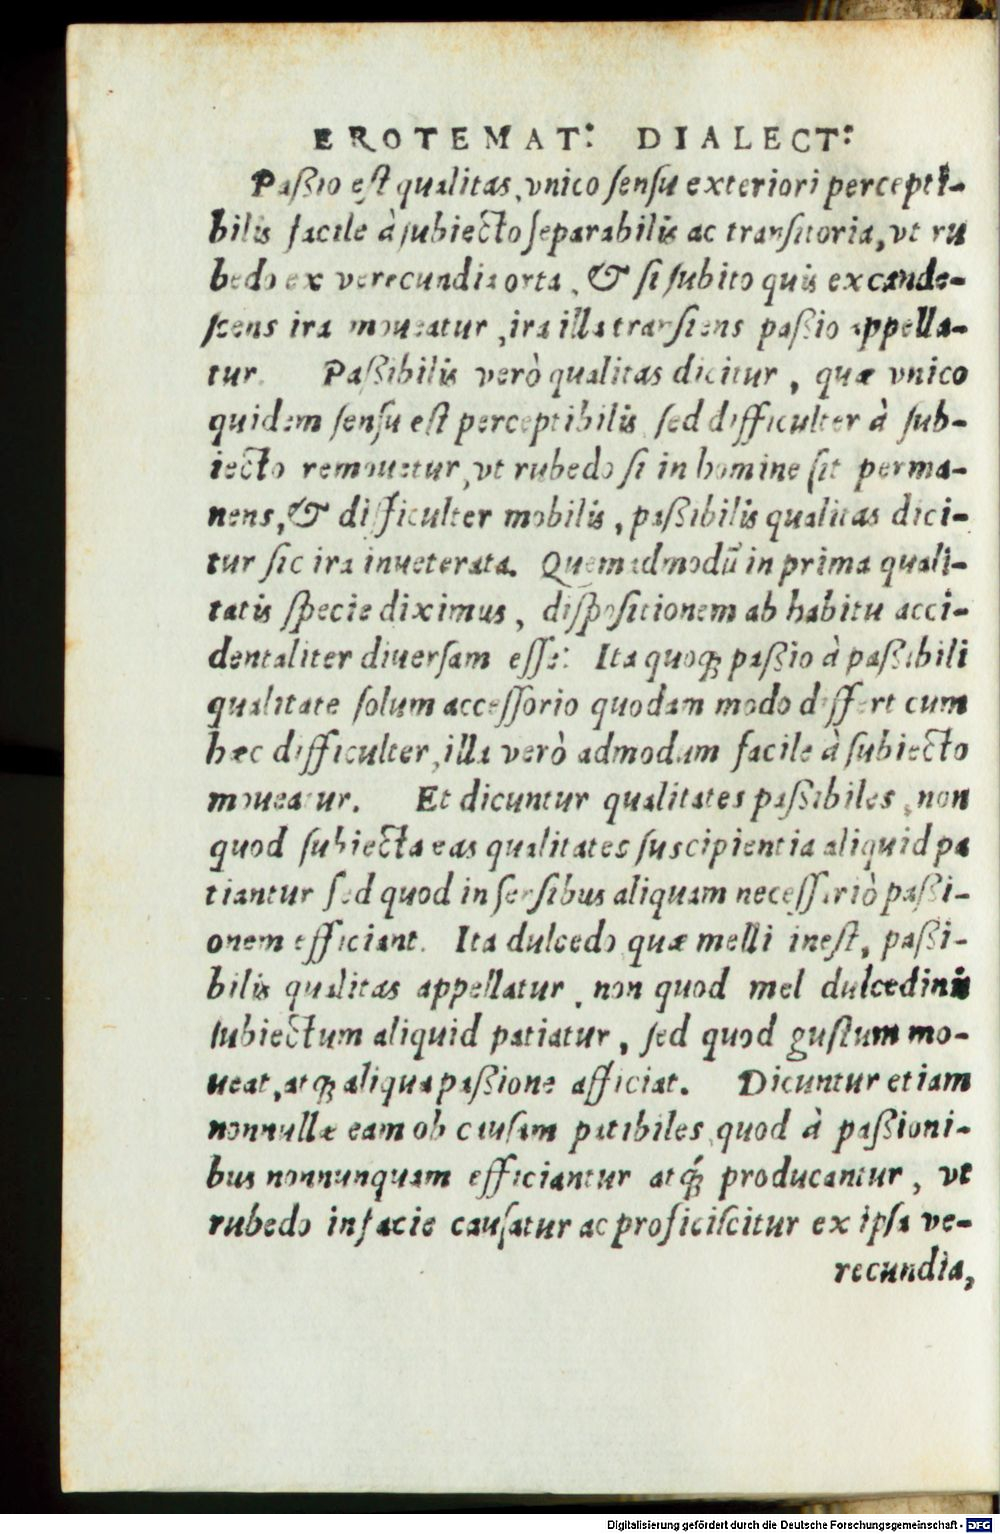 EROTEMAT: DIALECT:
Paßio est qualitas, vnico sensu exteriori percepti-
bilis facile à subiecto separabilis ac transitoria, vt ru
bedo ex verecundia orta, & si subito quis excande-
scens ira moueatur, ira illa transiens paßio appella-
tur. Paßibilis verò qualitas dicitur, quæ vnico
quidem sensu est perceptibilis sed difficulter à sub-
iecto remouetur, vt rubedo si in homine sit perma-
nens, & difficulter mobilis, paßibilis qualitas dici-
tur sic ira inueterata. Quemadmodũ in prima quali-
tatis specie diximus, dispositionem ab habitu acci-
dentaliter diuersam esse: Ita quoq; paßio à paßibili
qualitate solum accessorio quodam modo differt cum
hæc difficulter, illa verò admodum facile à subiecto
moueatur. Et dicuntur qualitates paßibiles, non
quod subiecta eas qualitates suscipientia aliquid pa
tiantur sed quod in sensibus aliquam necessariò paßi-
onem efficiant. Ita dulcedo quæ melli inest, paßi-
bilis qualitas appellatur, non quod mel dulcedinis
subiectum aliquid patiatur, sed quod gustum mo-
ueat, atq; aliqua paßione afficiat. Dicuntur etiam
nonnullæ eam ob causam patibiles, quod à paßioni-
bus nonnunquam efficiantur atq́; producantur, vt
rubedo in facie causatur ac proficiscitur ex ipsa ve-
recundia,
Digitalisierung gefördert durch die Deutsche Forschungsgemeinschaft - DFG